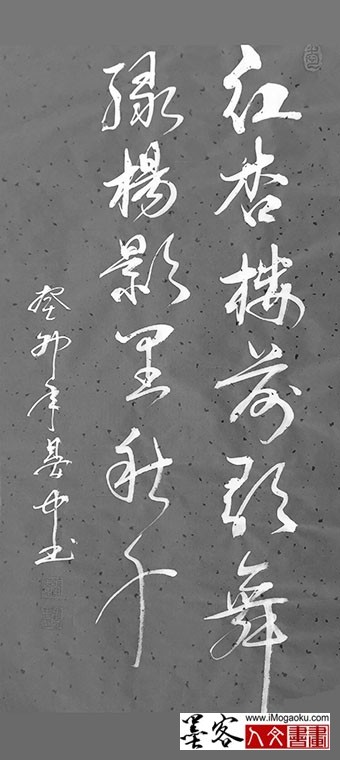 红杏楼前歌舞
绿楊影里秋千
癸卯年
墨客
www.iMogaoku.com
人文書畫